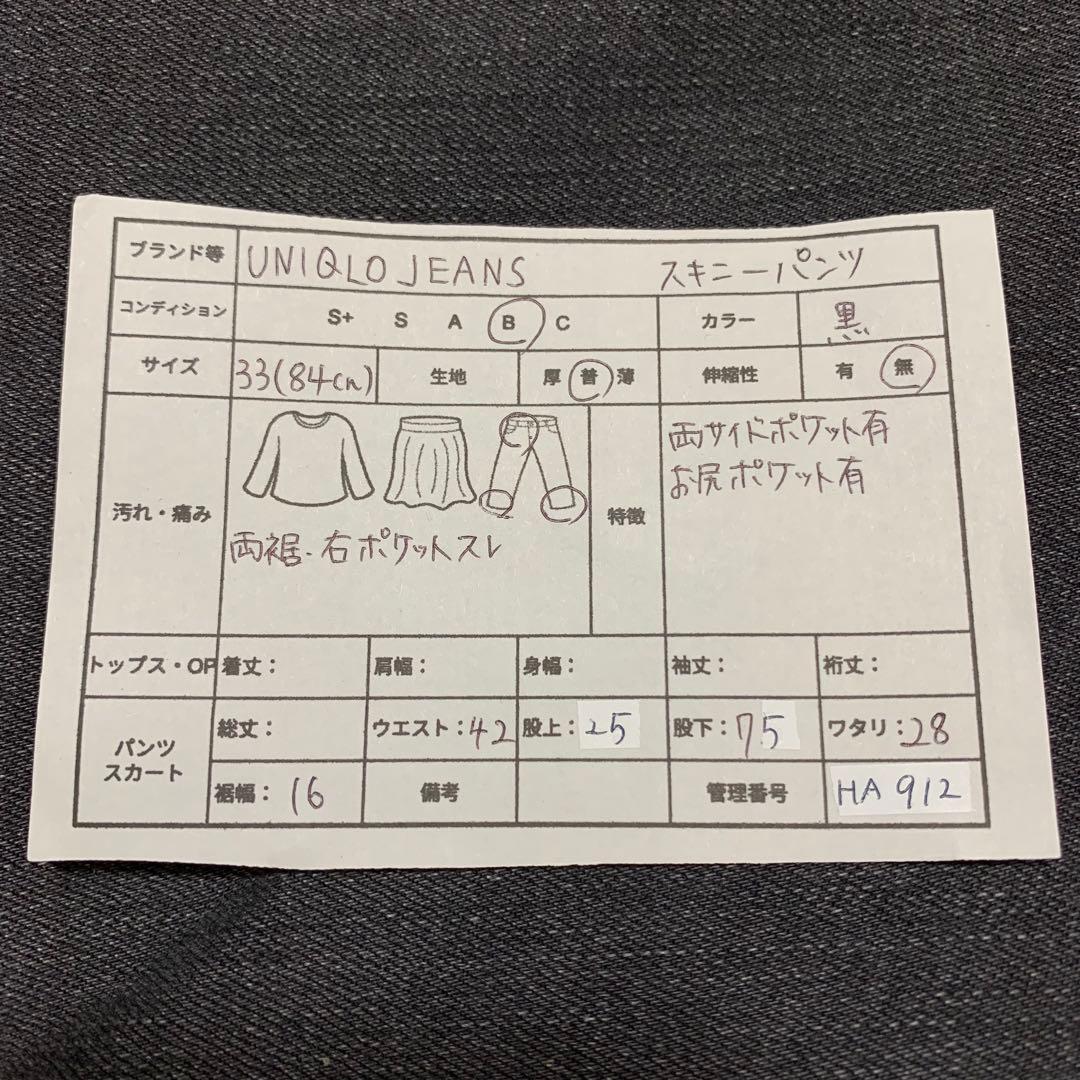 ブランド等 UNIQLO JEANS スキニーパンツ
コンディション S+ S A B C カラー 黒
サイズ 33(84cm) 生地 厚 普 薄 伸縮性 有 無
汚れ・痛み 両裾・右ポケットスレ 特徴 両サイドポケット有
お尻ポケット有
トップス・OP 着丈： 肩幅： 身幅： 袖丈： 裄丈：
パンツ スカート 総丈： ウエスト：42 股上：25 股下：75 ワタリ：28
裾幅：16 備考 管理番号 HA 912